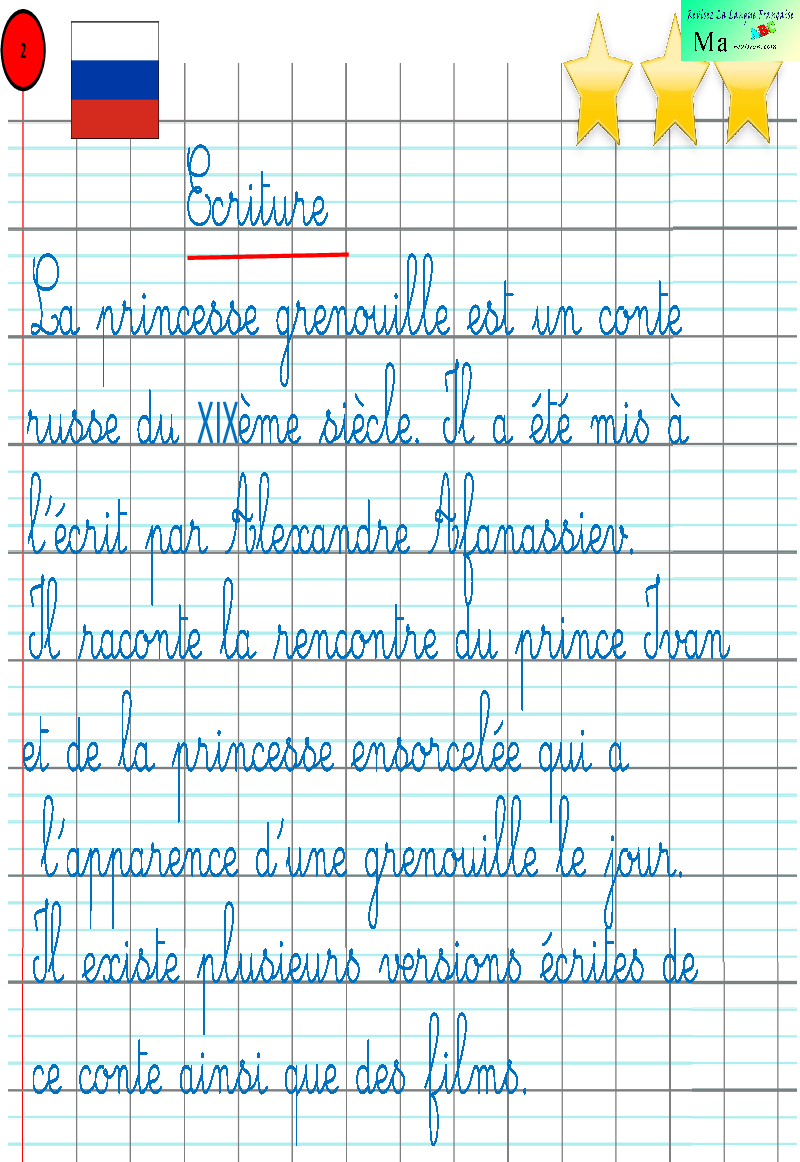 2
Revisez La Langue Française
Ma
Ecriture
La princesse grenouille est un conte
russe du XIXème siècle. Il a été mis à
l'écrit par Alexandre Afanassiev.
Il raconte la rencontre du prince Ivan
et de la princesse ensorcelée qui a
l'apparence d'une grenouille le jour.
Il existe plusieurs versions écrites de
ce conte ainsi que des films.